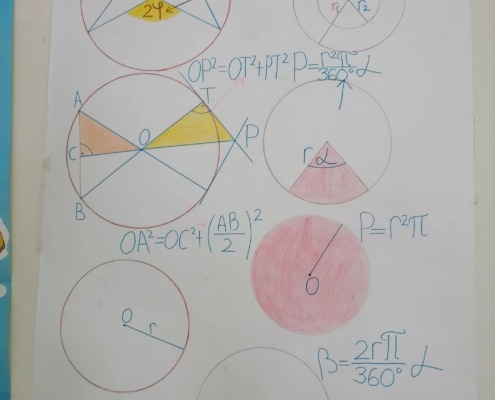 2φ
r₁ r₂
OP²=OT²+PT²
P=r²π/360° α
A
T
O
P
C
B
r α
OA²=OC²+(AB/2)²
P=r²π
O
O r
β=2rπ/360° α